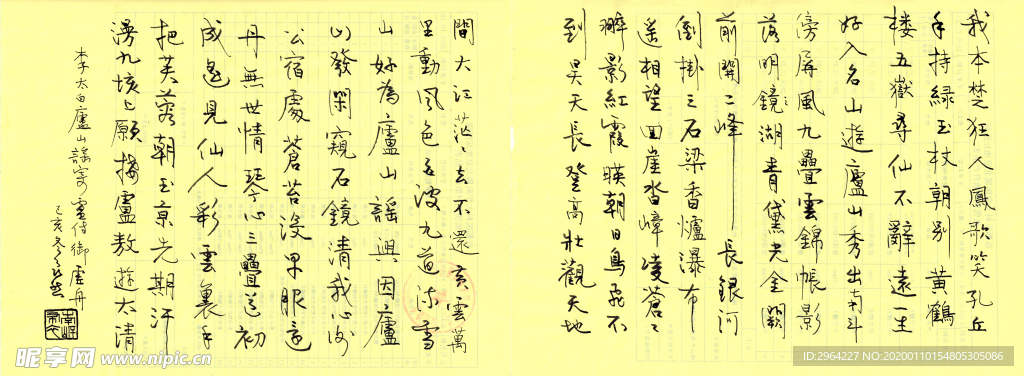 我本楚狂人鳳歌笑孔丘
手持緑玉杖朝別黄鶴
楼五嶽尋仙不辭遠一生
好入名山遊廬山秀出南斗
傍屏風九疊雲錦帳影
落明鏡湖青黛光金闕
前開二峰長銀河
倒掛三石梁香爐瀑布
遙相望回崖沓嶂凌蒼〻
翠影紅霞映朝日鳥飛不
到吳天長登高壯觀天地
間大江茫〻去不還黄雲萬
里動風色白波九道流雪
山好為廬山謠興因廬
山發閑窺石鏡清我心謝
公宿處蒼苔没早服還
丹無世情琴心三疊道初
成遥見仙人彩雲裏手
把芙蓉朝玉京先期汗
漫九垓上願接盧敖遊太清
李太白廬山謠寄盧侍御虛舟
己亥冬
昵享网 www.nipic.cn
ID:2964227 NO:20200110154805305086